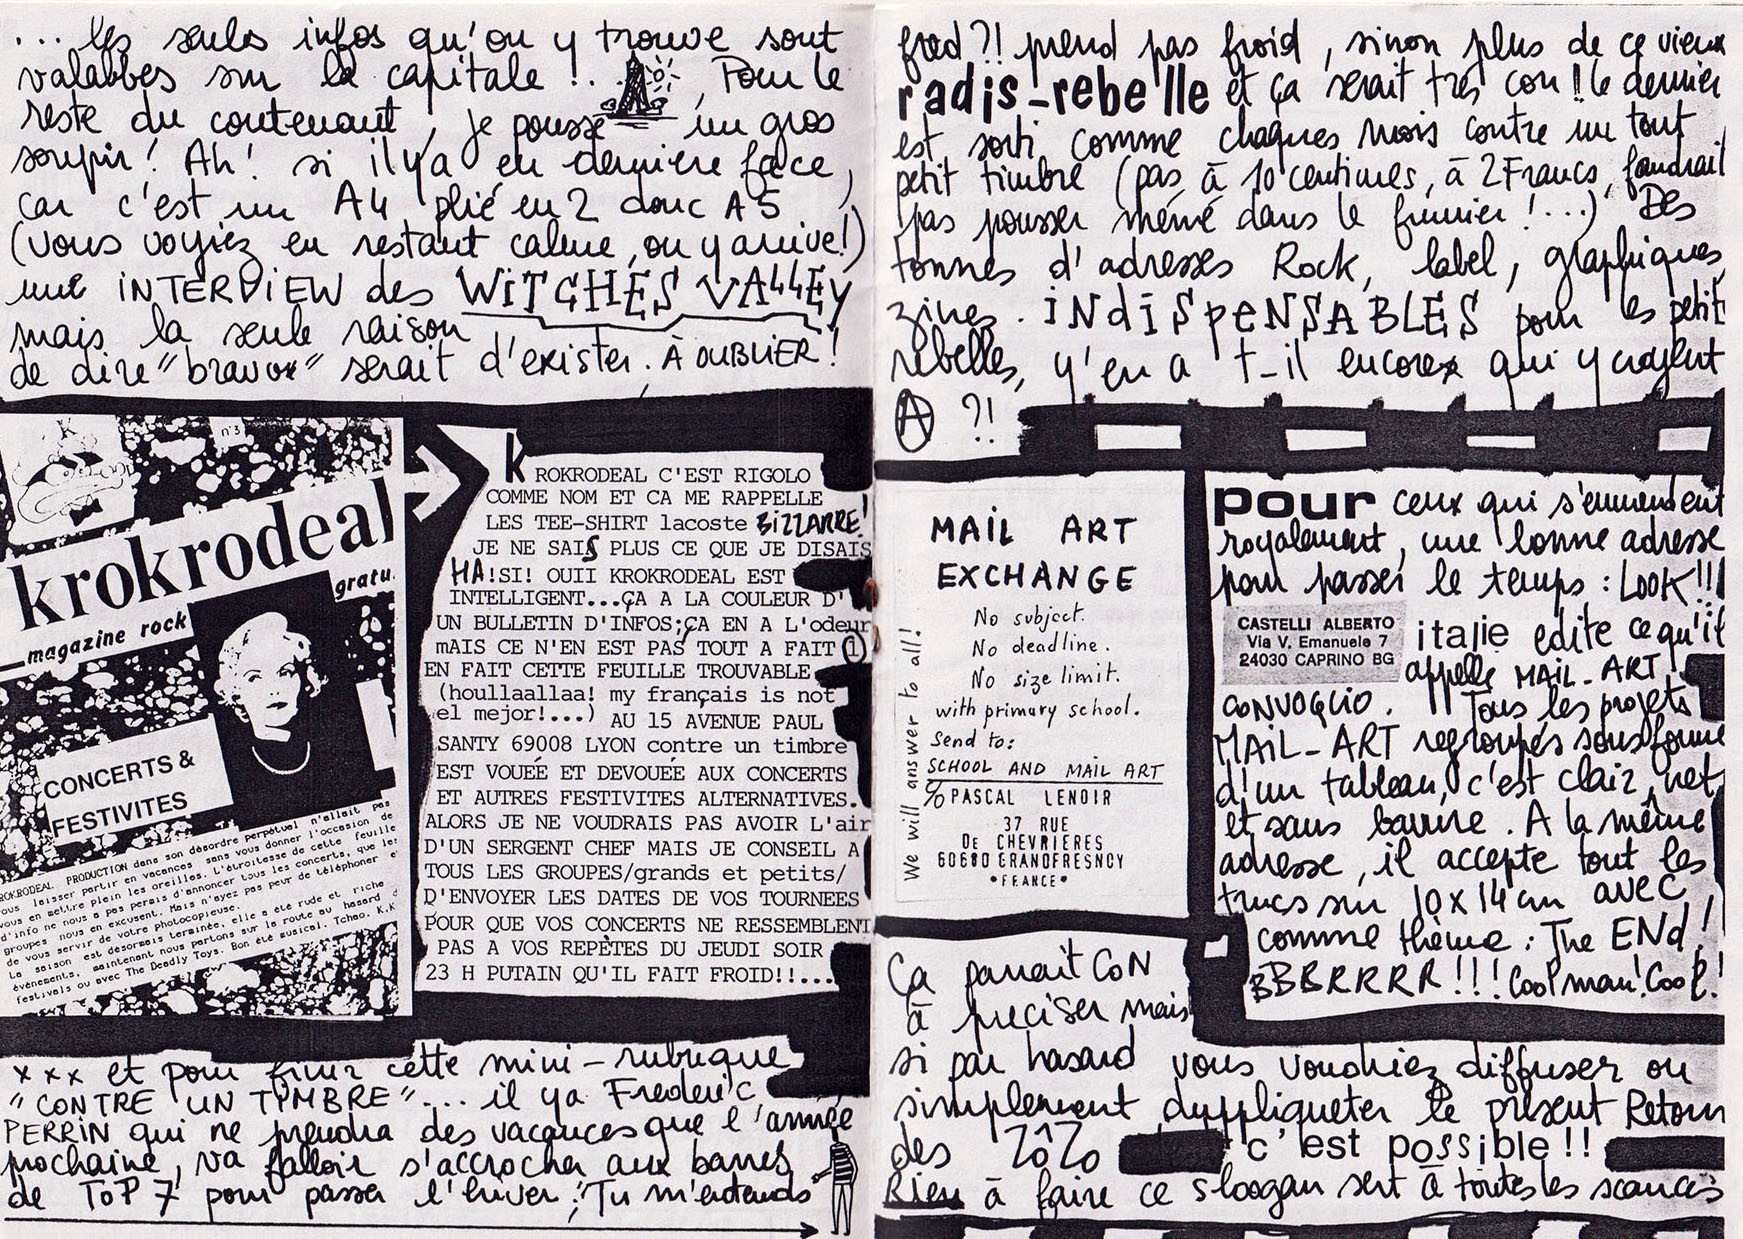 ... les seules infos qu'on y trouve sont
valabbes sur la capitale !.. Pour le
reste du contenant, je pousse un gros
soupir! Ah! si il y'a en dernière face,
car c'est un A4 plié en 2 donc A5
(vous voyiez en restant calme, on y arrive!)
une INTERVIEW des WITCHES VALLEY
mais la seule raison
de dire "bravox" serait d'exister. À OUBLIER!
n°3
krokrodeal
gratu
magazine rock
CONCERTS &
FESTIVITES
KROKRODEAL PRODUCTION dans son désordre perpétuel n'allait pas
vous laisser partir en vacances sans vous donner l'occasion de
vous en mettre plein les oreilles. L'étroitesse de cette feuille
d'info ne nous a pas permis d'annoncer tous les concerts, que les
groupes nous en excusent. Mais n'ayez pas peur de téléphoner
de vous servir de votre photocopieuse.
La saison est désormais terminée, elle a été rude et riche
évènements, maintenant nous partons sur la route au hasard
festivals ou avec The Deadly Toys. Bon été musical. Tchao. K.K
KROKRODEAL C'EST RIGOLO
COMME NOM ET CA ME RAPPELLE
LES TEE-SHIRT lacoste BiZZARRE!
JE NE SAIS PLUS CE QUE JE DISAIS
HA!SI! OUII KROKRODEAL EST
INTELLIGENT...ÇA A LA COULEUR D'
UN BULLETIN D'INFOS;ÇA EN A L'odeur
mAIS CE N'EN EST PAS TOUT A FAIT 1)
EN FAIT CETTE FEUILLE TROUVABLE
(houllaallaa! my français is not
el mejor!...) AU 15 AVENUE PAUL
SANTY 69008 LYON contre un timbre
EST VOUEÉ ET DEVOUEÉ AUX CONCERTS
ET AUTRES FESTIVITES ALTERNATIVES.
ALORS JE NE VOUDRAIS PAS AVOIR L'air
D'UN SERGENT CHEF MAIS JE CONSEIL A
TOUS LES GROUPES/grands et petits/
D'ENVOYER LES DATES DE VOS TOURNEES
POUR QUE VOS CONCERTS NE RESSEMBLENT
PAS A VOS REPÈTES DU JEUDI SOIR
23 H PUTAIN QU'IL FAIT FROID!!....
x x x et pour finir cette mini-rubrique
"CONTRE UN TIMBRE"... il ya Frederic
PERRIN qui ne prendra des vacances que l'année
prochaine, va falloir s'accrocher aux barres
de TOP 7 pour passer l'hiver! Tu m'entends
fred?! prend pas froid, sinon plus de ce vieux
radis-rebelle et ça serait très con!! le dernier
est sorti comme chaques mois contre un tout
petit timbre (pas à 10 centimes, à 2 Francs, faudrait
pas pousser mémé dans le fumier!...) Des
tonnes d'adresses Rock, label, graphiques,
zines. iNdiSpeNSABLES pour les petit
rebelles, y'en a t-il encorex qui y croyent
Ⓐ ?!
MAIL ART
EXCHANGE
No subject.
No deadline.
No size limit.
with primary school.
Send to:
SCHOOL AND MAIL ART
% PASCAL LENOIR
37 RUE
DE CHEVRIERES
60680 GRANDFRESNOY
•FRANCE•
We will answer to all!
pour ceux qui s'emmerdent
royalement, une bonne adresse
pour passer le temps : LOOK!!!
CASTELLI ALBERTO
Via V. Emanuele 7
24030 CAPRINO BG
italie édite ce qu'il
appelle MAIL-ART
CONVOGLIO. Tous les projets
MAIL-ART regroupés sous forme
d'un tableau, c'est clair, net
et sans bavure. A la même
adresse, il accepte tout les
trucs sur 10x14 cm avec
comme thème : The ENd!
BBBRRRRR!!! Cool man! Cool!
Ça parait CoN
à préciser mais
si par hasard vous voudriez diffuser ou
simplement duppliqueter le présent Retour
des ZôZo c'est possible!!
Rien à faire ce sloogan sert à toutes les scances